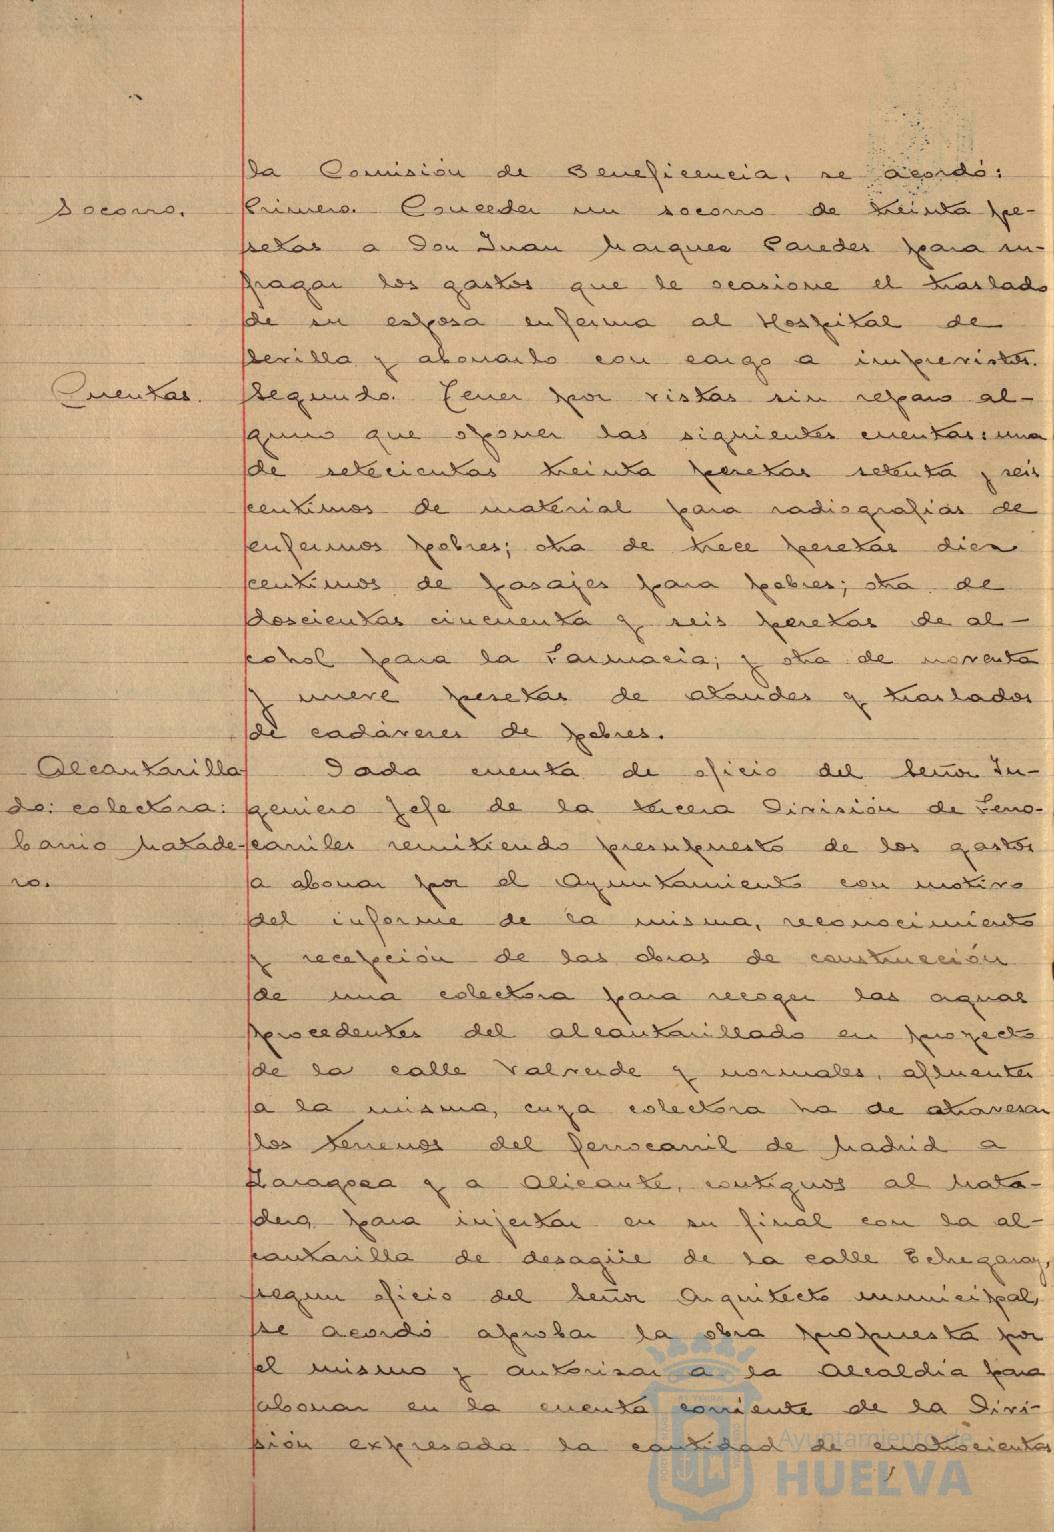 la Comisión de Beneficencia, se acordó:
Socorro. Primero. Conceder un socorro de treinta pe-
setas a Don Juan Marquez Paredes para su-
fragar los gastos que le ocasione el traslado
de su esposa enferma al Hospital de
Sevilla y abonarlo con cargo a imprevistos.
Cuentas. Segundo. Tener por vistas sin reparo al-
guno que oponer las siguientes cuentas: una
de setecientas treinta pesetas setenta y seis
centimos de material para radiografias de
enfermos pobres; otra de trece pesetas diez
centimos de pasajes para pobres; otra de
doscientas cincuenta y seis pesetas de al-
cohol para la Farmacia; y otra de noventa
y nueve pesetas de ataudes y traslados
de cadáveres de pobres.
Alcantarilla Dada cuenta de oficio del Señor In-
do: colectora: geniero Jefe de la tercera División de Ferro-
barrio Matade- carriles remitiendo presupuesto de los gastos
ro. a abonar por el Ayuntamiento con motivo
del informe de la misma, reconocimiento
y recepción de las obras de construcción
de una colectora para recoger las aguas
procedentes del alcantarillado en proyecto
de la calle Valverde y normales, afluentes
a la misma, cuya colectora ha de atravesar
los terrenos del ferrocarril de Madrid a
Zaragoza y a Alicante, contiguos al Mata-
dero, para injertar en su final con la al-
cantarilla de desagüe de la calle Echegaray,
segun oficio del Señor Arquitecto municipal,
se acordó aprobar la obra propuesta por
el mismo y autorizar a la Alcaldía para
abonar en la cuenta corriente de la Divi-
sión expresada la cantidad de cuatrocientas
Ayuntamiento de
HUELVA